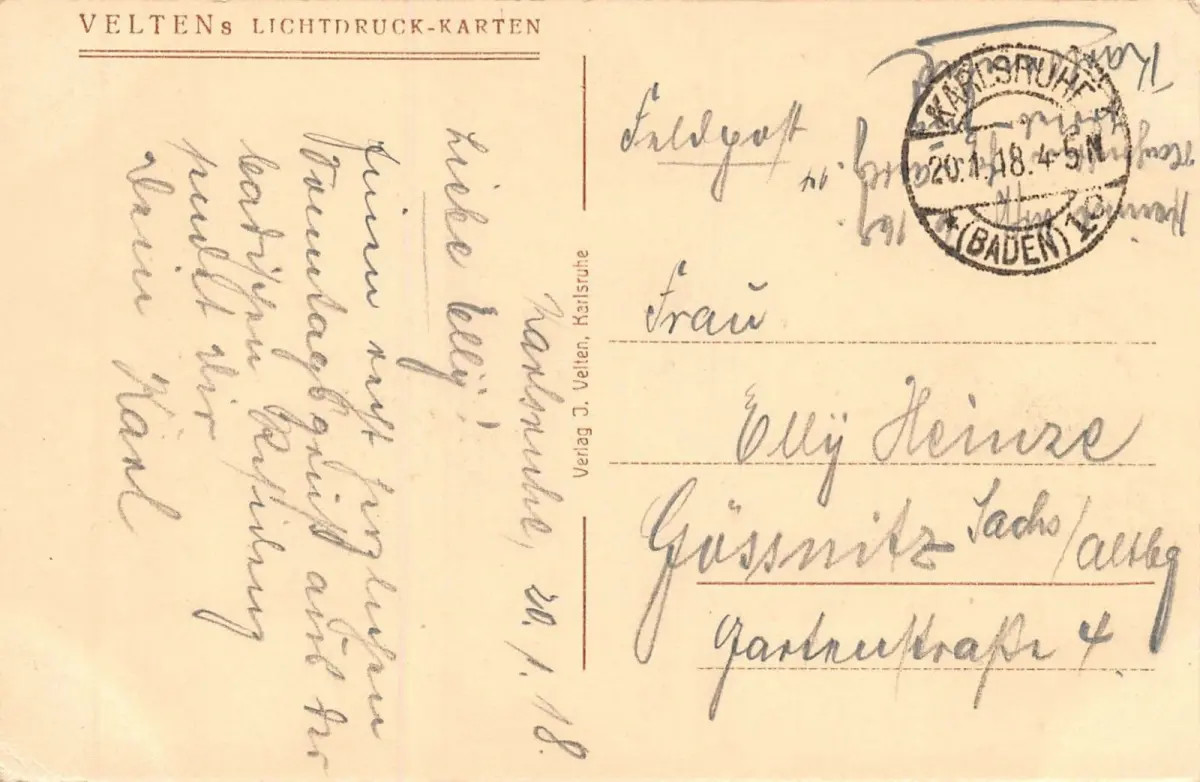 VELTENS LICHTDRUCK-KARTEN
Karlsruhe, 20.1.18.
Liebe Elly!
Einen recht herzlichen
Sonntagsgruß aus der
badischen Residenz
sendet Dir
Dein Karl
Verlag J. Velten, Karlsruhe
Feldpost
KARLSRUHE
20.1.18.4-5N
* (BADEN) 1
Frau
Elly Heinze
Gössnitz Sachs/Altbg
Gartenstraße 4